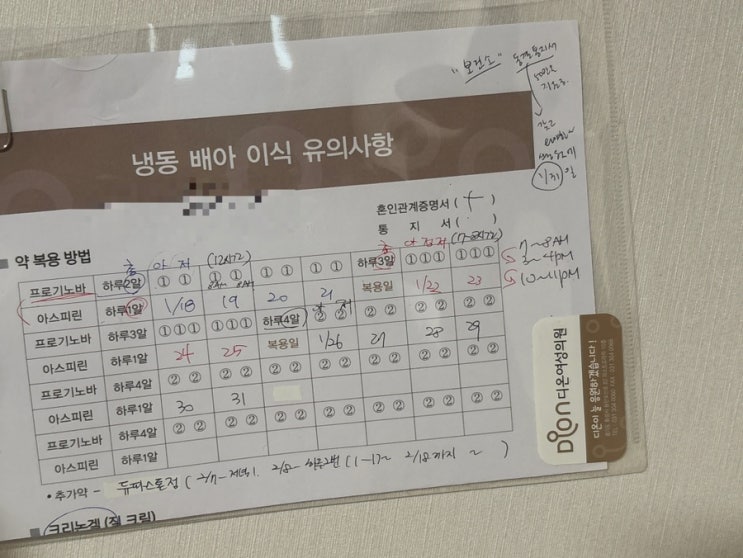 "보건소"
1/31 일
냉동 배아 이식 유의사항
혼인관계증명서 ( + )
통 지 서 ( · )
■ 약 복용 방법
총 아 저 (12시간) 총 아 점 저 (7~8시간)
프로기노바 하루2알 ① ① ① ① ① ① ① ① 하루3알 ①①① ①①①
7~8AM
3~4PM
10~11PM
아스피린 하루1알 1/18 19 20 21 복용일 1/22 23
프로기노바 하루3알 ①①① ①①① 하루4알 ② ② ② ② ② ② ② ②
아스피린 하루1알 24 25 복용일 1/26 27 28 29
프로기노바 하루4알 ② ② ② ② ② ② ② ② ② ② ② ② ② ②
아스피린 하루1알 30 31
프로기노바 하루4알 ② ② ② ② ② ② ② ② ② ② ② ② ② ②
아스피린 하루1알
• 추가약 - 듀파스톤정 ( 2/7~ 저녁1. 2/8~ 하루2번 (1-1)~ 2/18까지 ~ )
■ 크리논겔 (질 크림)
Dion 디온여성의원
디온이 늘 응원하겠습니다!